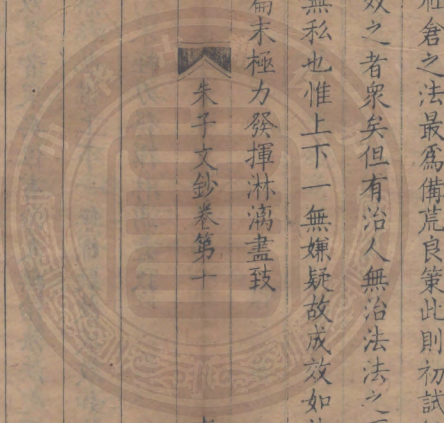 社倉之法最爲備荒良策此則初試
效之者衆矣但有治人無治法法之
無私也惟上下一無嫌疑故成效如
篇末極力發揮淋漓盡致
朱子文鈔卷第十